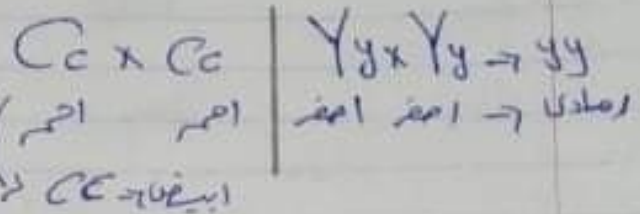 Cc x Cc | Yy x Yy → yy
احمر احمر | اصفر اصفر → رصادى
cc → ابيض